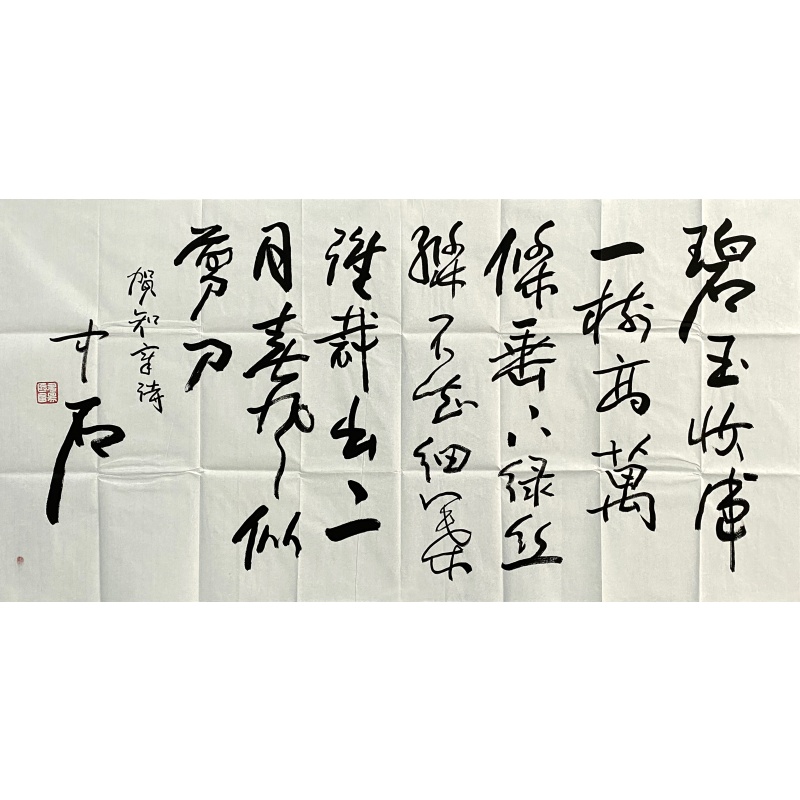 碧玉妝成
一樹高萬
條垂下綠絲
絛不知細葉
誰裁出二
月春風似
剪刀
賀知章詩
中石